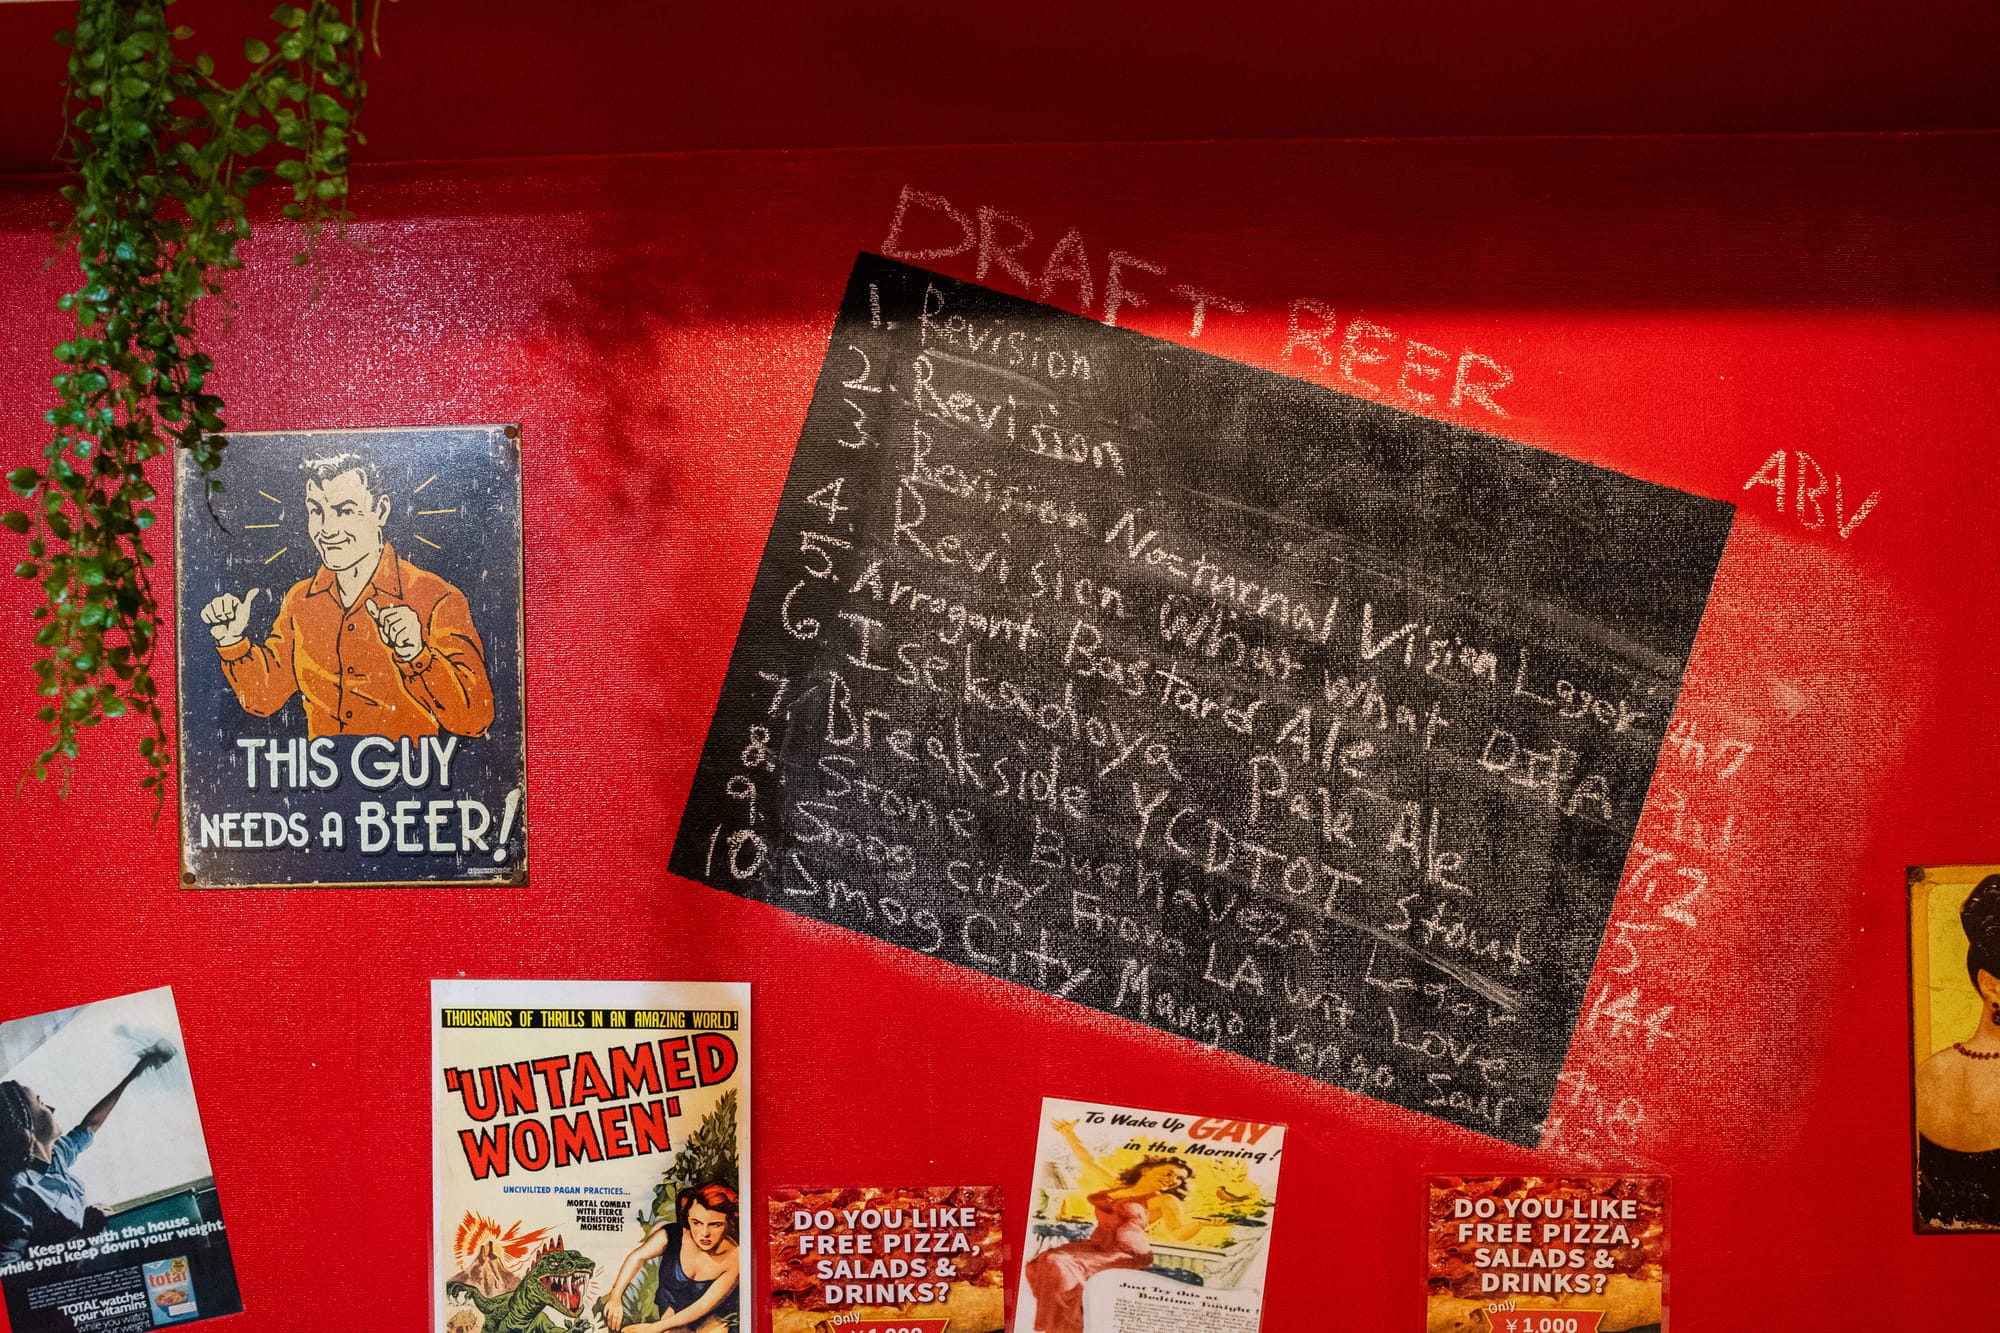 DRAFT BEER
ABV
1. Revision
2. Revision
3. Revision Nocturnal Vision Lager
4. Revision What What DIPA
5. Arrogant Bastard Ale
6 Isekadoya Pale Ale
7. Breakside YCDTOT Stout
8. Stone Buenaveza Lager
9. Smog city From LA with Love
10. Smog City Mango Kongo Sour
7.2
5
THIS GUY
NEEDS A BEER!
Keep up with the house
while you keep down your weight.
total
TOTAL watches
your vitamins
while you watch
your weight
THOUSANDS OF THRILLS IN AN AMAZING WORLD!
"UNTAMED
WOMEN"
UNCIVILIZED PAGAN PRACTICES...
MORTAL COMBAT
WITH FIERCE
PREHISTORIC
MONSTERS!
DO YOU LIKE
FREE PIZZA,
SALADS &
DRINKS?
Only
¥1,000
To Wake Up GAY
in the Morning!
Just Try this at
Bedtime Tonight!
DO YOU LIKE
FREE PIZZA,
SALADS &
DRINKS?
Only
¥1,000